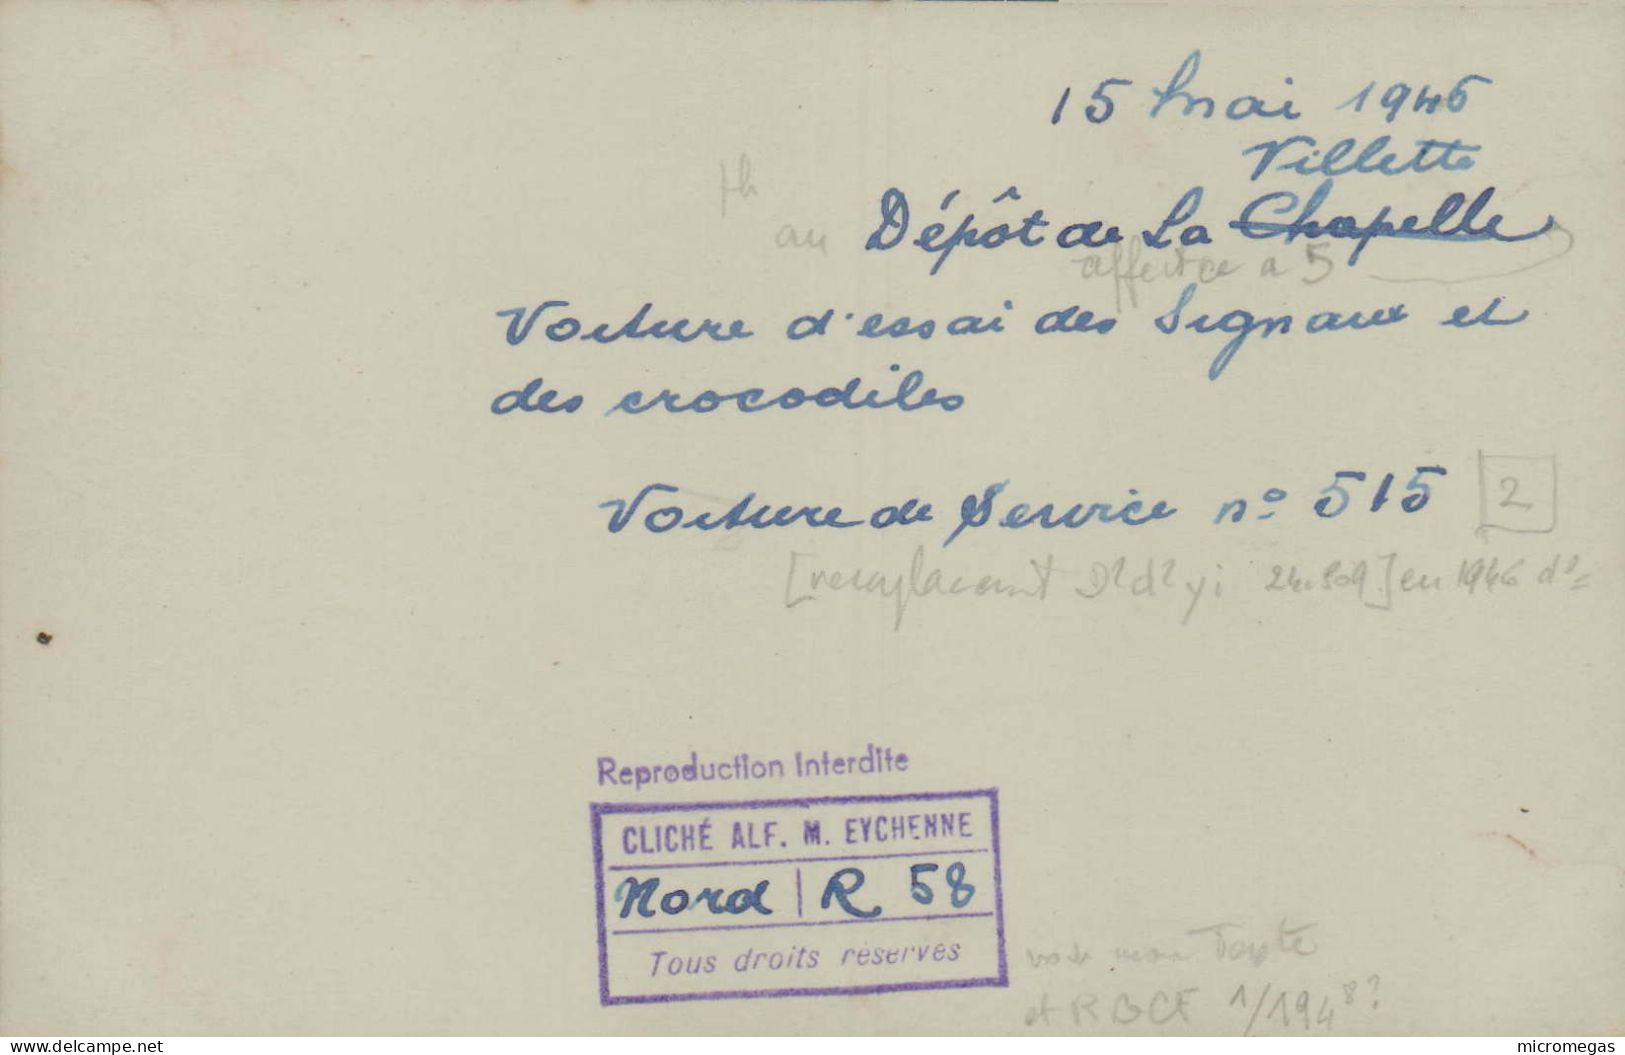 15 Mai 1946
Villette
ph
au Dépôt de La Chapelle
affectée à 5
Voiture d'essai des Signaux et
des crocodiles
Voiture de Service n° 515 2
[remplacent D²d² yi 24.809] en 1946 d°=
Reproduction Interdite
CLICHÉ ALF. M. EYCHENNE
Nord R 58
Tous droits réservés
voir mon Texte
et RGCF 1/1948?
delcampe.net
micromegas